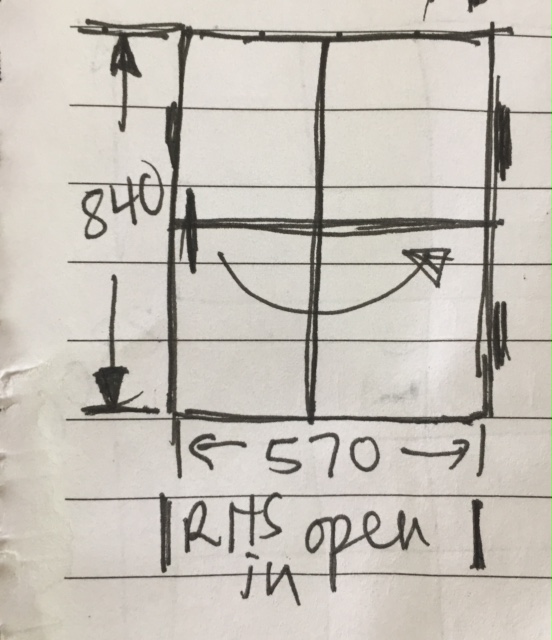 840
570
RHS open
in